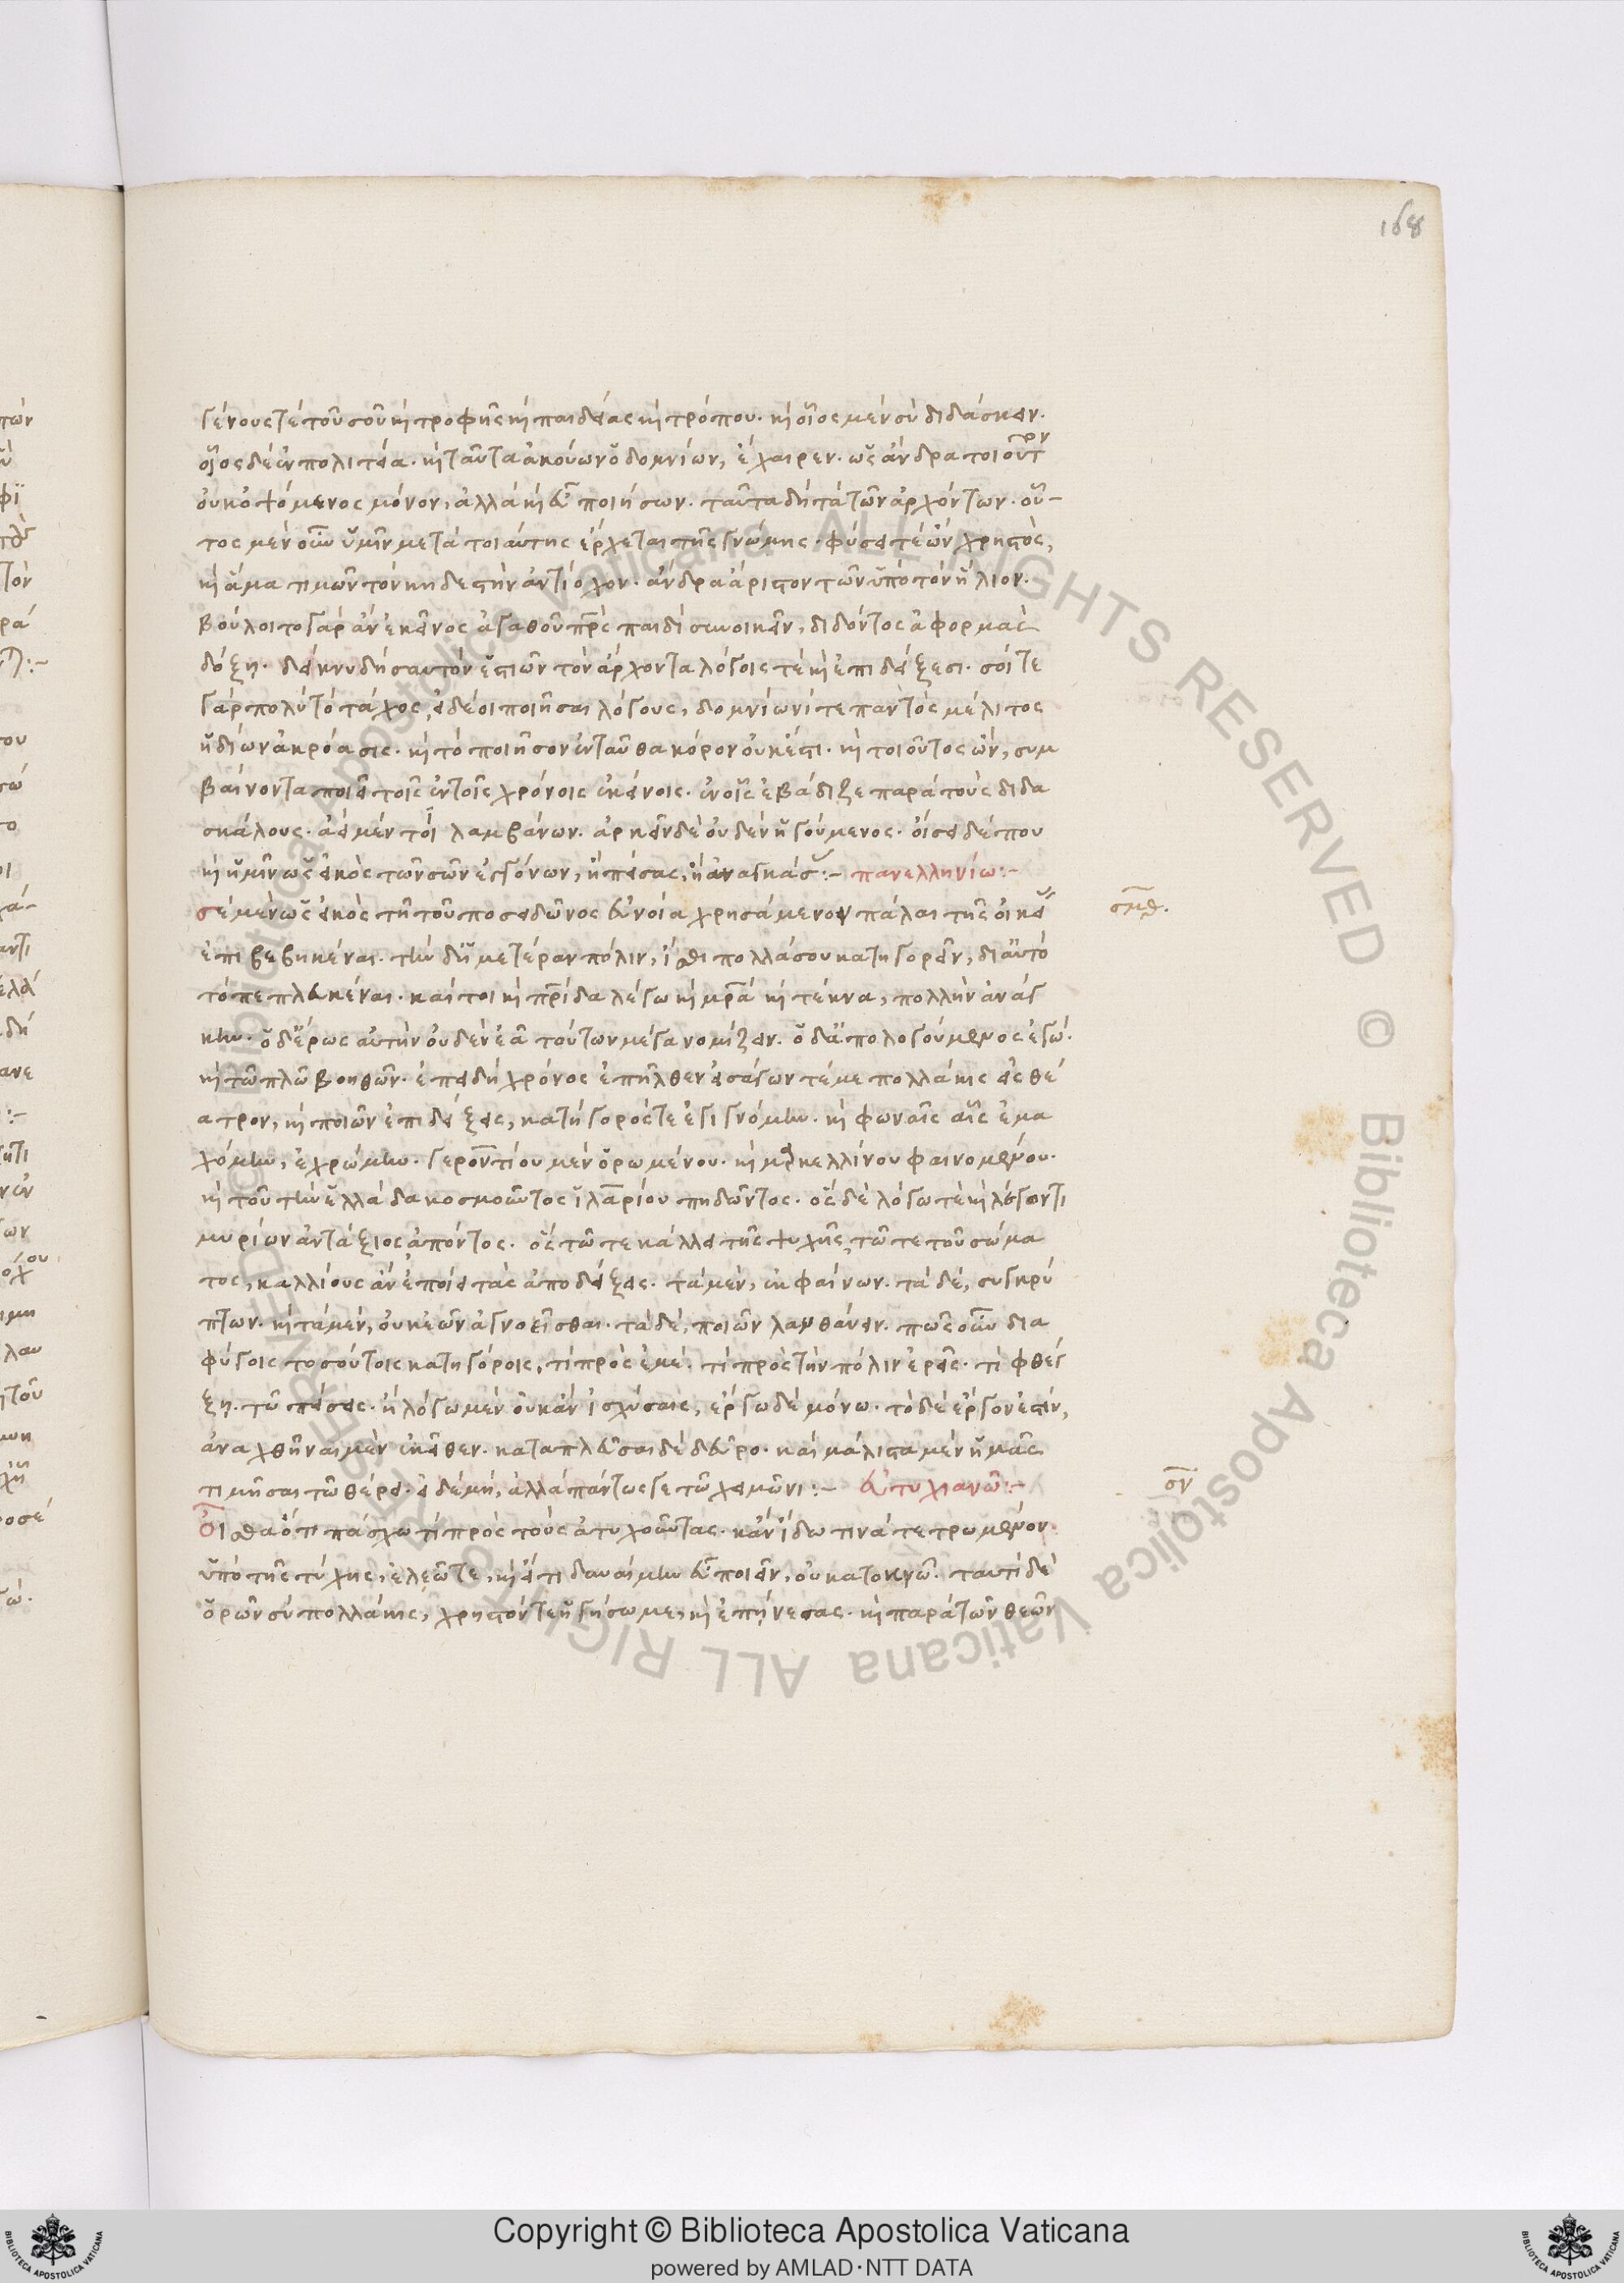 168
γένους τὲ τοῦ σοῦ κὴ τροφῆς κὴ παιδείας κὴ τρόπου· κὴ οἷος μὲν σὺ διδάσκειν·
οἷος δὲ ἐν πολιτεία· κὴ ταῦτα ἀκούων ὁ δομνίων, ἔχαιρεν· ὡς ἄνδρα τοιοῦτον
οὐκ ὀψόμενος μόνον, ἀλλὰ κὴ εὖ ποιήσων· ταῦτα δὴ τὰ τῶν ἀρχόντων· οὗ-
τος μὲν οὖν ὑμῖν μετὰ τοιαύτης ἔρχεται τῆς γνώμης· φύσει τὲ ὢν χρηστὸς,
κὴ ἅμα τιμῶν τὸν κηδεστὴν ἀντίοχον· ἄνδρα ἄριστον τῶν ὑπὸ τὸν ἥλιον·
βούλοιτο γὰρ ἂν ἐκεῖνος ἀγαθοῦ πρὸς παιδὶ συνοικεῖν, διδόντος ἀφορμὰς
δόξη· δείκνυ δὴ σαυτὸν ἑστιῶν τὸν ἄρχοντα λόγοις τὲ κὴ ἐπιδείξεσι· σοί τε
γὰρ πολὺ τὸ τάχος, εἰ δέοι ποιῆσαι λόγους, δομνίωνί τε παντὸς μέλιτος
ἡδίων ἀκρόασις· κὴ τὸ ποιῆσον ἐνταῦθα κόρον οὐκ ἔστι· κὴ τοιοῦτος ὢν, συμ
βαίνοντα ποιεῖ τοῖς ἐν τοῖς χρόνοις ἐκείνοις· ἐν οἷς ἐβάδιζε παρὰ τοὺς διδα
σκάλους· ἀεὶ μέν τοι λαμβάνων· ἀρκεῖν δὲ οὐδὲν ἡγούμενος· οἴσει δέ που
κὴ ἡμῖν ὡς εἰκὸς τῶν σῶν ἐγγόνων, ἢ πείσας, ἢ ἀναγκάσας:- πανελληνίω:-
σὲ μὲν ὡς εἰκὸς τῆ τοῦ ποσειδῶνος εὐνοία χρησάμενον πάλαι τῆς οἰκείας
σμθ.
ἐπιβεβηκέναι· τὴν δ' ἡμετέραν πόλιν, ἴσθι πολλά σου κατηγορεῖν, δι' αὐτὸ
τὸ πεπλευκέναι· καίτοι κὴ πρίδα λέγω κὴ μρα κὴ τέκνα, πολλὴν ἀνάγ
κην· ὁ δ' ἔρως αὐτὴν οὐδὲν ἐᾶ τούτων μέγα νομίζειν· ὁ δ' ἀπολογούμενος ἐγώ·
κὴ τῶ πλῶ βοηθῶν· ἐπειδὴ χρόνος ἐπῆλθεν εἰσάγων τέ με πολλάκις εἰς θέ
ατρον, κὴ ποιῶν ἐπιδείξεις, κατήγορός τε ἐγιγνόμην· κὴ φωναῖς αἷς ἐμα
χόμην, ἐχρώμην· γεροντίου μὲν ὁρωμένου· κὴ μαρκελλίνου φαινομένου·
κὴ τοῦ τὴν ἑλλάδα κοσμοῦντος ἱλαρίου πηδῶντος· ὃς δὲ λόγω τὲ κὴ λέγοντι
μυρίων ἀντάξιος, ἀπόντος· ὃς τῶ τε κάλλει τῆς ψυχῆς, τῶ τε τοῦ σώμα
τος, καλλίους ἂν ἐποίει τὰς ἀποδείξεις· τὰ μὲν, ἐκφαίνων· τὰ δὲ, συγκρύ
πτων· κὴ τὰ μὲν, οὐκ ἐῶν ἀγνοεῖσθαι· τὰ δὲ, ποιῶν λανθάνειν· πῶς οὖν δια
φύγοις τοσούτοις κατηγόροις, τί πρὸς ἐμὲ, τί πρὸς τὴν πόλιν ἐρεῖς· τὶ φθέγ
ξη· τῶ πείσεις· ἢ λόγω μὲν οὐκ ἂν ἰσχύσαις, ἔργω δὲ μόνω· τὸ δὲ ἔργον ἐστὶν,
ἀναχθῆναι μὲν ἐκεῖθεν· καταπλεῦσαι δὲ δεῦρο· καὶ μάλιστα μὲν ἡμᾶς
τιμῆσαι τῶ θέρει· εἰ δὲ μὴ, ἀλλὰ πάντως γε τῶ χειμῶνι:- εὐτυχιανῶ:-
σν
Οἶσθα ὅτι πάσχω τί πρὸς τοὺς ἀτυχοῦντας· κἂν ἴδω τινὰ τετρωμένον
ὑπὸ τῆς τύχης, ἐλεῶ τε, κὴ εἴ τι δυναίμην εὖ ποιεῖν, οὐ κατοκνῶ· ταυτὶ δὲ
ὁρῶν σὺ πολλάκις, χρηστόν τε ἡγήσω με, κὴ ἐπήνεσας· κὴ παρὰ τῶν θεῶν
Copyright © Biblioteca Apostolica Vaticana
powered by AMLAD·NTT DATA